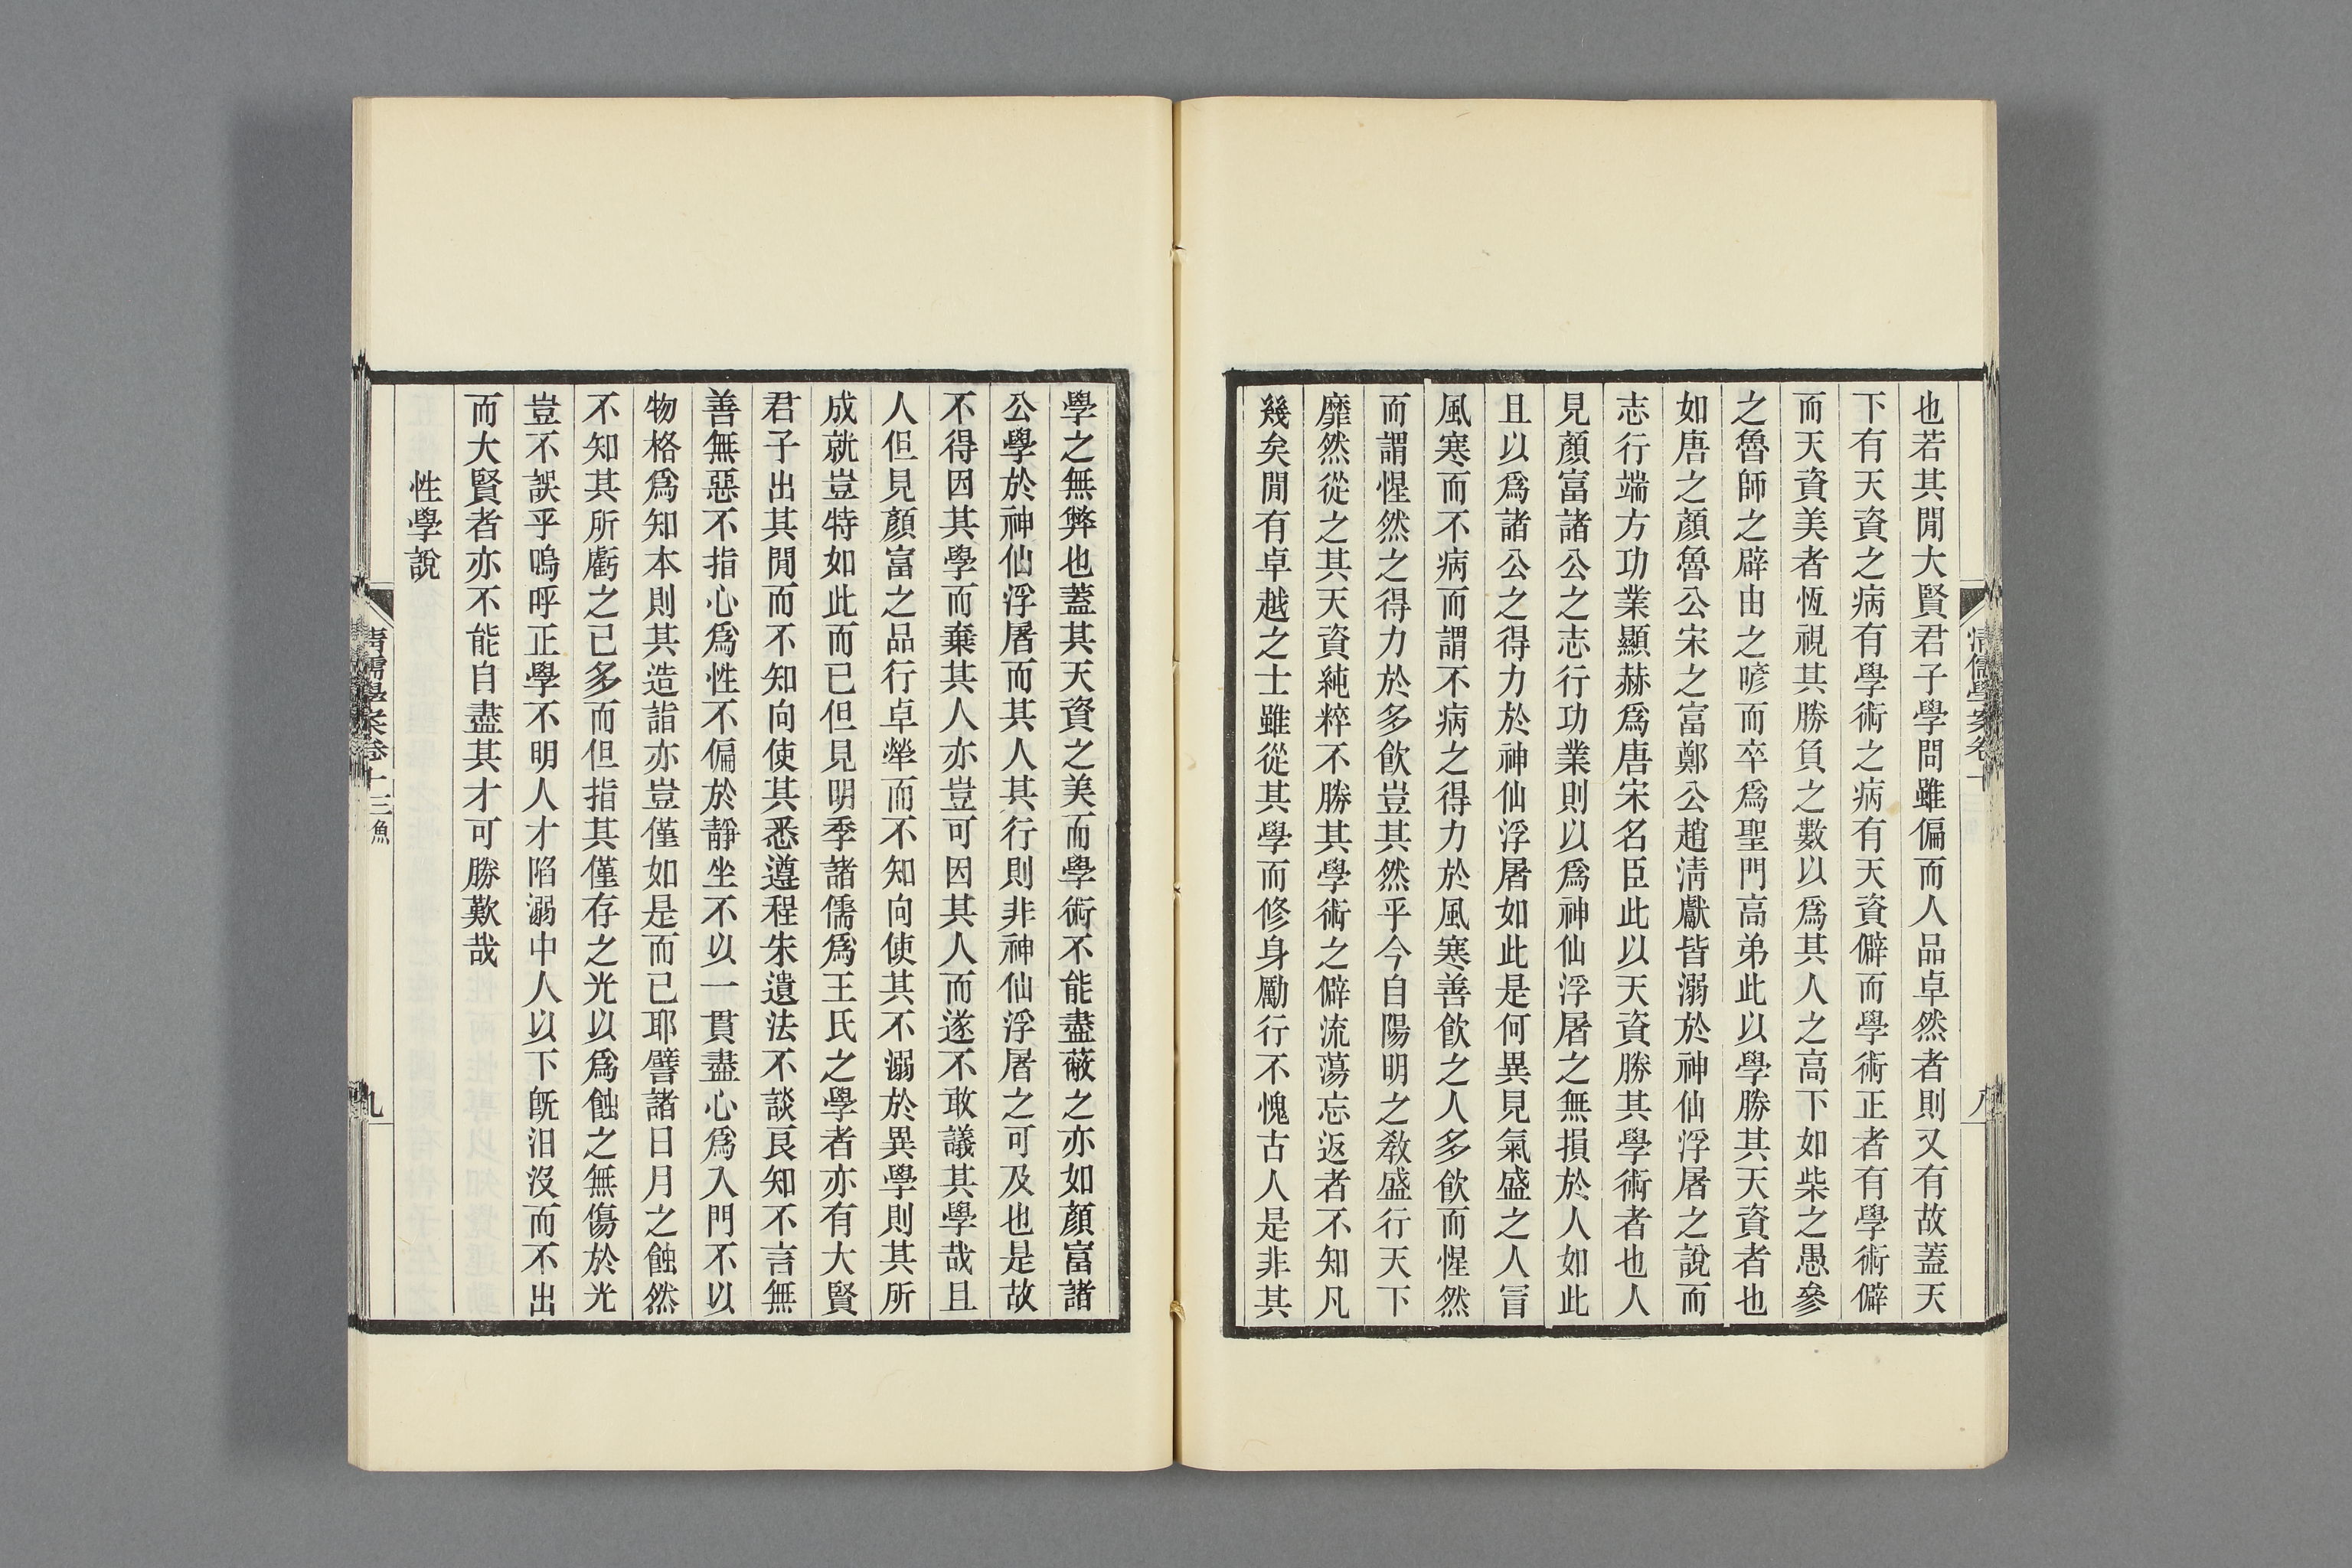 清儒學案卷十
八
也若其閒大賢君子學問雖偏而人品卓然者則又有故蓋天
下有天資之病有學術之病有天資僻而學術正者有學術僻
而天資美者恆視其勝負之數以爲其人之高下如柴之愚參
之魯師之辟由之喭而卒爲聖門高弟此以學勝其天資者也
如唐之顏魯公宋之富鄭公趙淸獻皆溺於神仙浮屠之說而
志行端方功業顯赫爲唐宋名臣此以天資勝其學術者也人
見顏富諸公之志行功業則以爲神仙浮屠之無損於人如此
且以爲諸公之得力於神仙浮屠如此是何異見氣盛之人冒
風寒而不病而謂不病之得力於風寒善飮之人多飮而惺然
而謂惺然之得力於多飮豈其然乎今自陽明之敎盛行天下
靡然從之其天資純粹不勝其學術之僻流蕩忘返者不知凡
幾矣閒有卓越之士雖從其學而修身勵行不愧古人是非其
學之無弊也蓋其天資之美而學術不能盡蔽之亦如顏富諸
公學於神仙浮屠而其人其行則非神仙浮屠之可及也是故
不得因其學而棄其人亦豈可因其人而遂不敢議其學哉且
人但見顏富之品行卓犖而不知向使其不溺於異學則其所
成就豈特如此而已但見明季諸儒爲王氏之學者亦有大賢
君子出其閒而不知向使其悉遵程朱遺法不談良知不言無
善無惡不指心爲性不偏於靜坐不以一貫盡心爲入門不以
物格爲知本則其造詣亦豈僅如是而已耶譬諸日月之蝕然
不知其所虧之已多而但指其僅存之光以爲蝕之無傷於光
豈不誤乎嗚呼正學不明人才陷溺中人以下旣汨沒而不出
而大賢者亦不能自盡其才可勝歎哉
性學說
清儒學案卷十 三魚
九